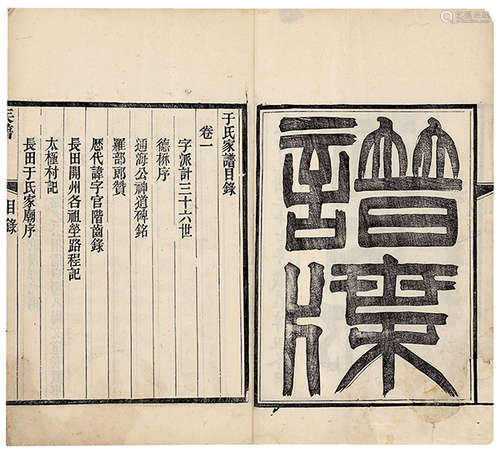 譜牒
于氏家譜目錄
卷一
字派計三十六世
德序
通海公神道碑銘
羅部郎贊
厯代諱字官階齒錄
長田開州各祖塋路程記
太極村記
長田于氏家廟序
目錄